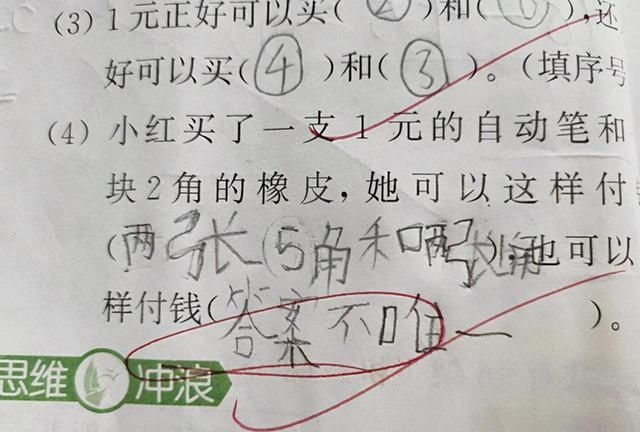 (3) 1元正好可以买(②)和(),还
好可以买(④)和(③)。(填序号
(4) 小红买了一支1元的自动笔和
块2角的橡皮,她可以这样付
(两张⑤角和两张角),也可以
样付钱(答案不唯一)。
思维冲浪